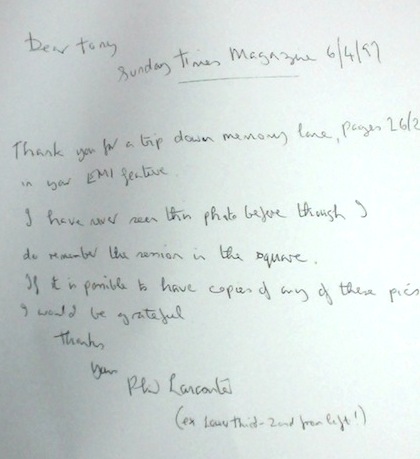 Dear Tony
Sunday Times Magazine 6/4/97
Thank you for a trip down memory lane, pages 26/2
in your EMI feature.
I have never seen this photo before though I
do remember the session in the square.
If it is possible to have copies of any of these pics
I would be grateful
Thanks
Yours
Phil Lancaster
(ex Lower Third - 2nd from left!)